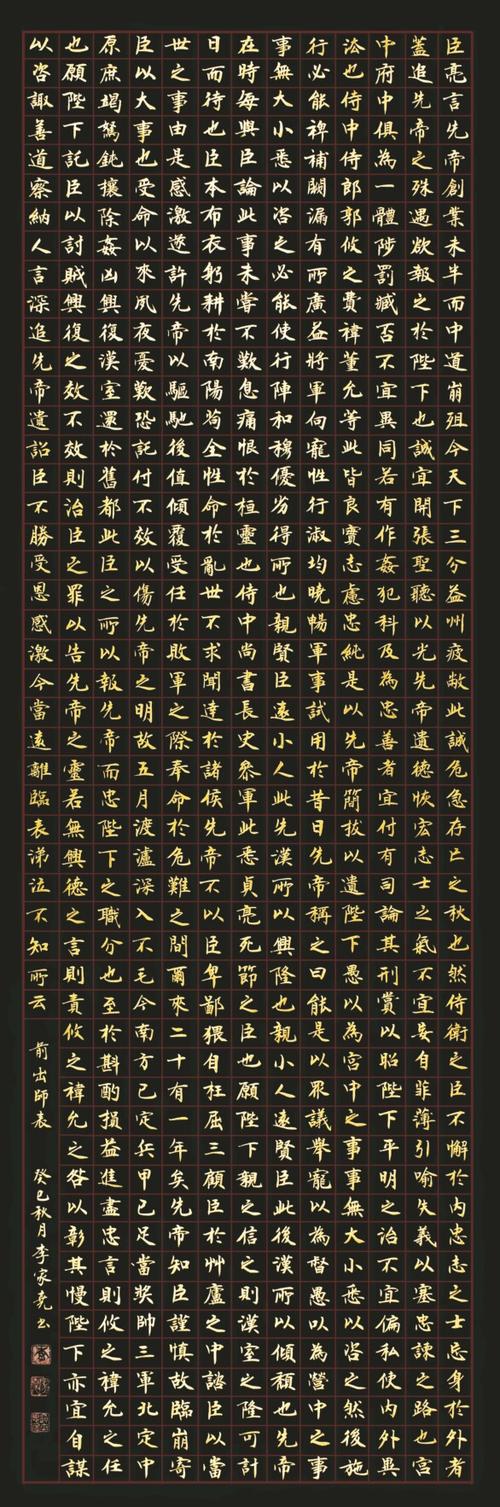 臣亮言先帝創業未半而中道崩殂今天下三分益州疲敝此誠危急存亡之秋也然侍衛之臣不懈於內忠志之士忘身於外者
蓋追先帝之殊遇欲報之於陛下也誠宜開張聖聽以光先帝遺德恢宏志士之氣不宜妄自菲薄引喻失義以塞忠諫之路也宮
中府中俱為一體陟罰臧否不宜異同若有作姦犯科及為忠善者宜付有司論其刑賞以昭陛下平明之治不宜偏私使內外異
法也侍中侍郎郭攸之費禕董允等此皆良實志慮忠純是以先帝簡拔以遺陛下愚以為宮中之事事無大小悉以咨之然後施
行必能裨補闕漏有所廣益將軍向寵性行淑均曉暢軍事試用於昔日先帝稱之曰能是以眾議舉寵以為督愚以為營中之事
事無大小悉以咨之必能使行陣和穆優劣得所也親賢臣遠小人此先漢所以興隆也親小人遠賢臣此後漢所以傾頹也先帝
在時每與臣論此事未嘗不歎息痛恨於桓靈也侍中尚書長史參軍此悉貞亮死節之臣也願陛下親之信之則漢室之隆可計
日而待也臣本布衣躬耕於南陽苟全性命於亂世不求聞達於諸侯先帝不以臣卑鄙猥自枉屈三顧臣於艸廬之中諮臣以當
世之事由是感激遂許先帝以驅馳後值傾覆受任於敗軍之際奉命於危難之間爾來二十有一年矣先帝知臣謹慎故臨崩寄
臣以大事也受命以來夙夜憂歎恐託付不效以傷先帝之明故五月渡瀘深入不毛今南方已定兵甲已足當獎帥三軍北定中
原庶竭駑鈍攘除姦凶興復漢室還於舊都此臣之所以報先帝而忠陛下之職分也至於斟酌損益進盡忠言則攸之禕允之任
也願陛下託臣以討賊興復之效不效則治臣之罪以告先帝之靈若無興德之言則責攸之禕允之咎以彰其慢陛下亦宜自謀
以咨諏善道察納人言深追先帝遺詔臣不勝受恩感激今當遠離臨表涕泣不知所云 前出師表 癸巳秋月李家尧書